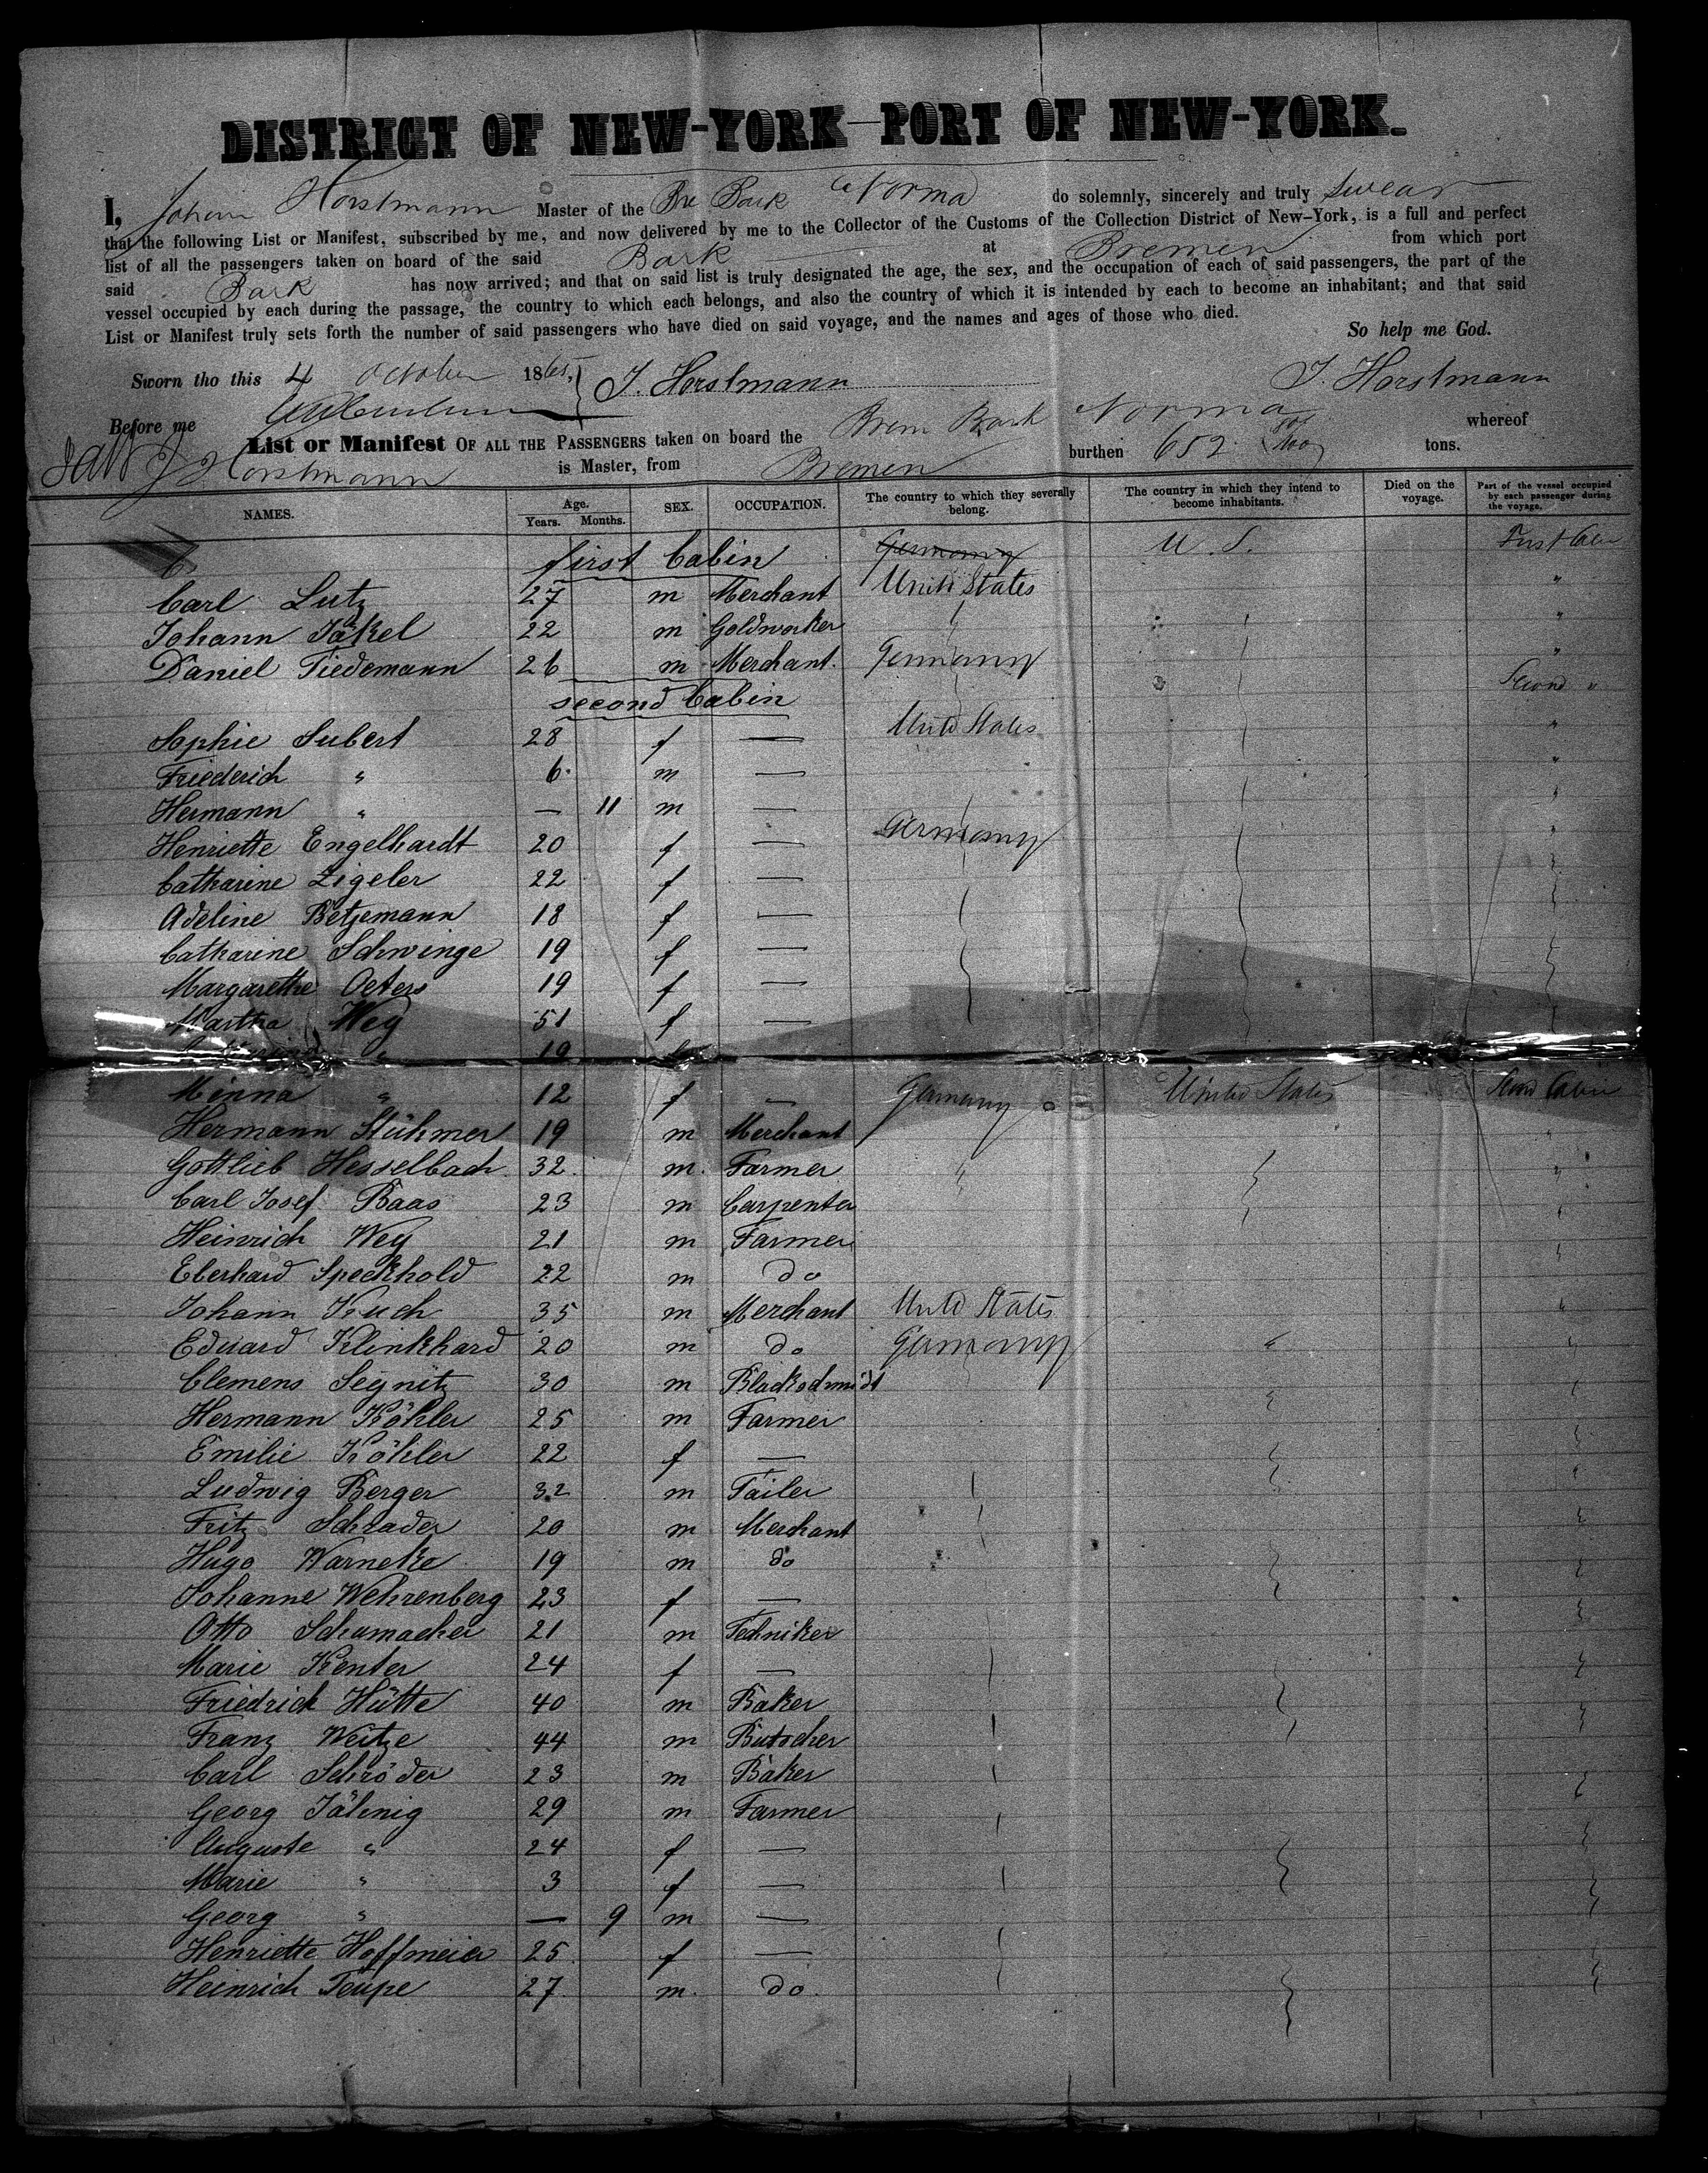 DISTRICT OF NEW-YORK—PORT OF NEW-YORK.
I, Johann Horstmann Master of the Bre Bark Norma do solemnly, sincerely and truly swear
that the following List or Manifest, subscribed by me, and now delivered by me to the Collector of the Customs of the Collection District of New-York, is a full and perfect
list of all the passengers taken on board of the said Bark at Bremen from which port
said Bark has now arrived; and that on said list is truly designated the age, the sex, and the occupation of each of said passengers, the part of the
vessel occupied by each during the passage, the country to which each belongs, and also the country of which it is intended by each to become an inhabitant; and that said
List or Manifest truly sets forth the number of said passengers who have died on said voyage, and the names and ages of those who died.
So help me God.
Sworn tho this 4 October 1865, J. Horstmann J. Horstmann
Before me
List or Manifest OF ALL THE PASSENGERS taken on board the Brem Bark Norma whereof
J. Horstmann is Master, from Bremen burthen 652 tons.
NAMES. Age. Years. Months. SEX. OCCUPATION. The country to which they severally belong. The country in which they intend to become inhabitants. Died on the voyage. Part of the vessel occupied by each passenger during the voyage.
first Cabin Germany U. S. First Cabin
Carl Lutz 27 m Merchant United States "
Johann Jäkel 22 m Goldworker "
Daniel Tiedemann 26 m Merchant Germany "
second Cabin Second "
Sophie Subert 28 f — United States "
Friederich " 6 m — "
Hermann " — 11 m —
Henriette Engelhardt 20 f — Germany
Catharine Zigeler 22 f —
Adeline Betzemann 18 f —
Catharine Schwinge 19 f —
Margarethe Oeters 19 f —
Martha Wey 51 f —
" 19
Minna " 12 f — Germany United States Second Cabin
Hermann Stühmer 19 m Merchant "
Gottlieb Hesselbach 32 m. Farmer "
Carl Josef Baas 23 m Carpenter
Heinrich Wey 21 m Farmer
Eberhard Speckhold 22 m do
Johann Kuch 35 m Merchant United States "
Eduard Klinkhard 20 m do Germany "
Clemens Segnitz 30 m Blackschmidt
Hermann Köhler 25 m Farmer
Emilie Köhler 22 f —
Ludwig Berger 32 m Tailer
Fritz Schrader 20 m Merchant
Hugo Warneke 19 m do
Johanne Wehrenberg 23 f —
Otto Schumacher 21 m Techniker
Marie Kenter 24 f —
Friedrich Hütte 40 m Baker
Franz Weitze 44 m Butscher
Carl Schröder 23 m Baker
Georg Jähnig 29 m Farmer
Auguste " 24 f —
Marie " 3 f —
Georg " — 9 m —
Henriette Hoffmeier 25 f —
Heinrich Teupe 27 m. do.